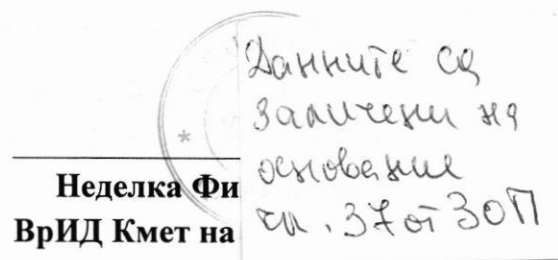 Данните са
заличени на
основание
чл. 37 от ЗОП
Неделка Фи
ВрИД Кмет на